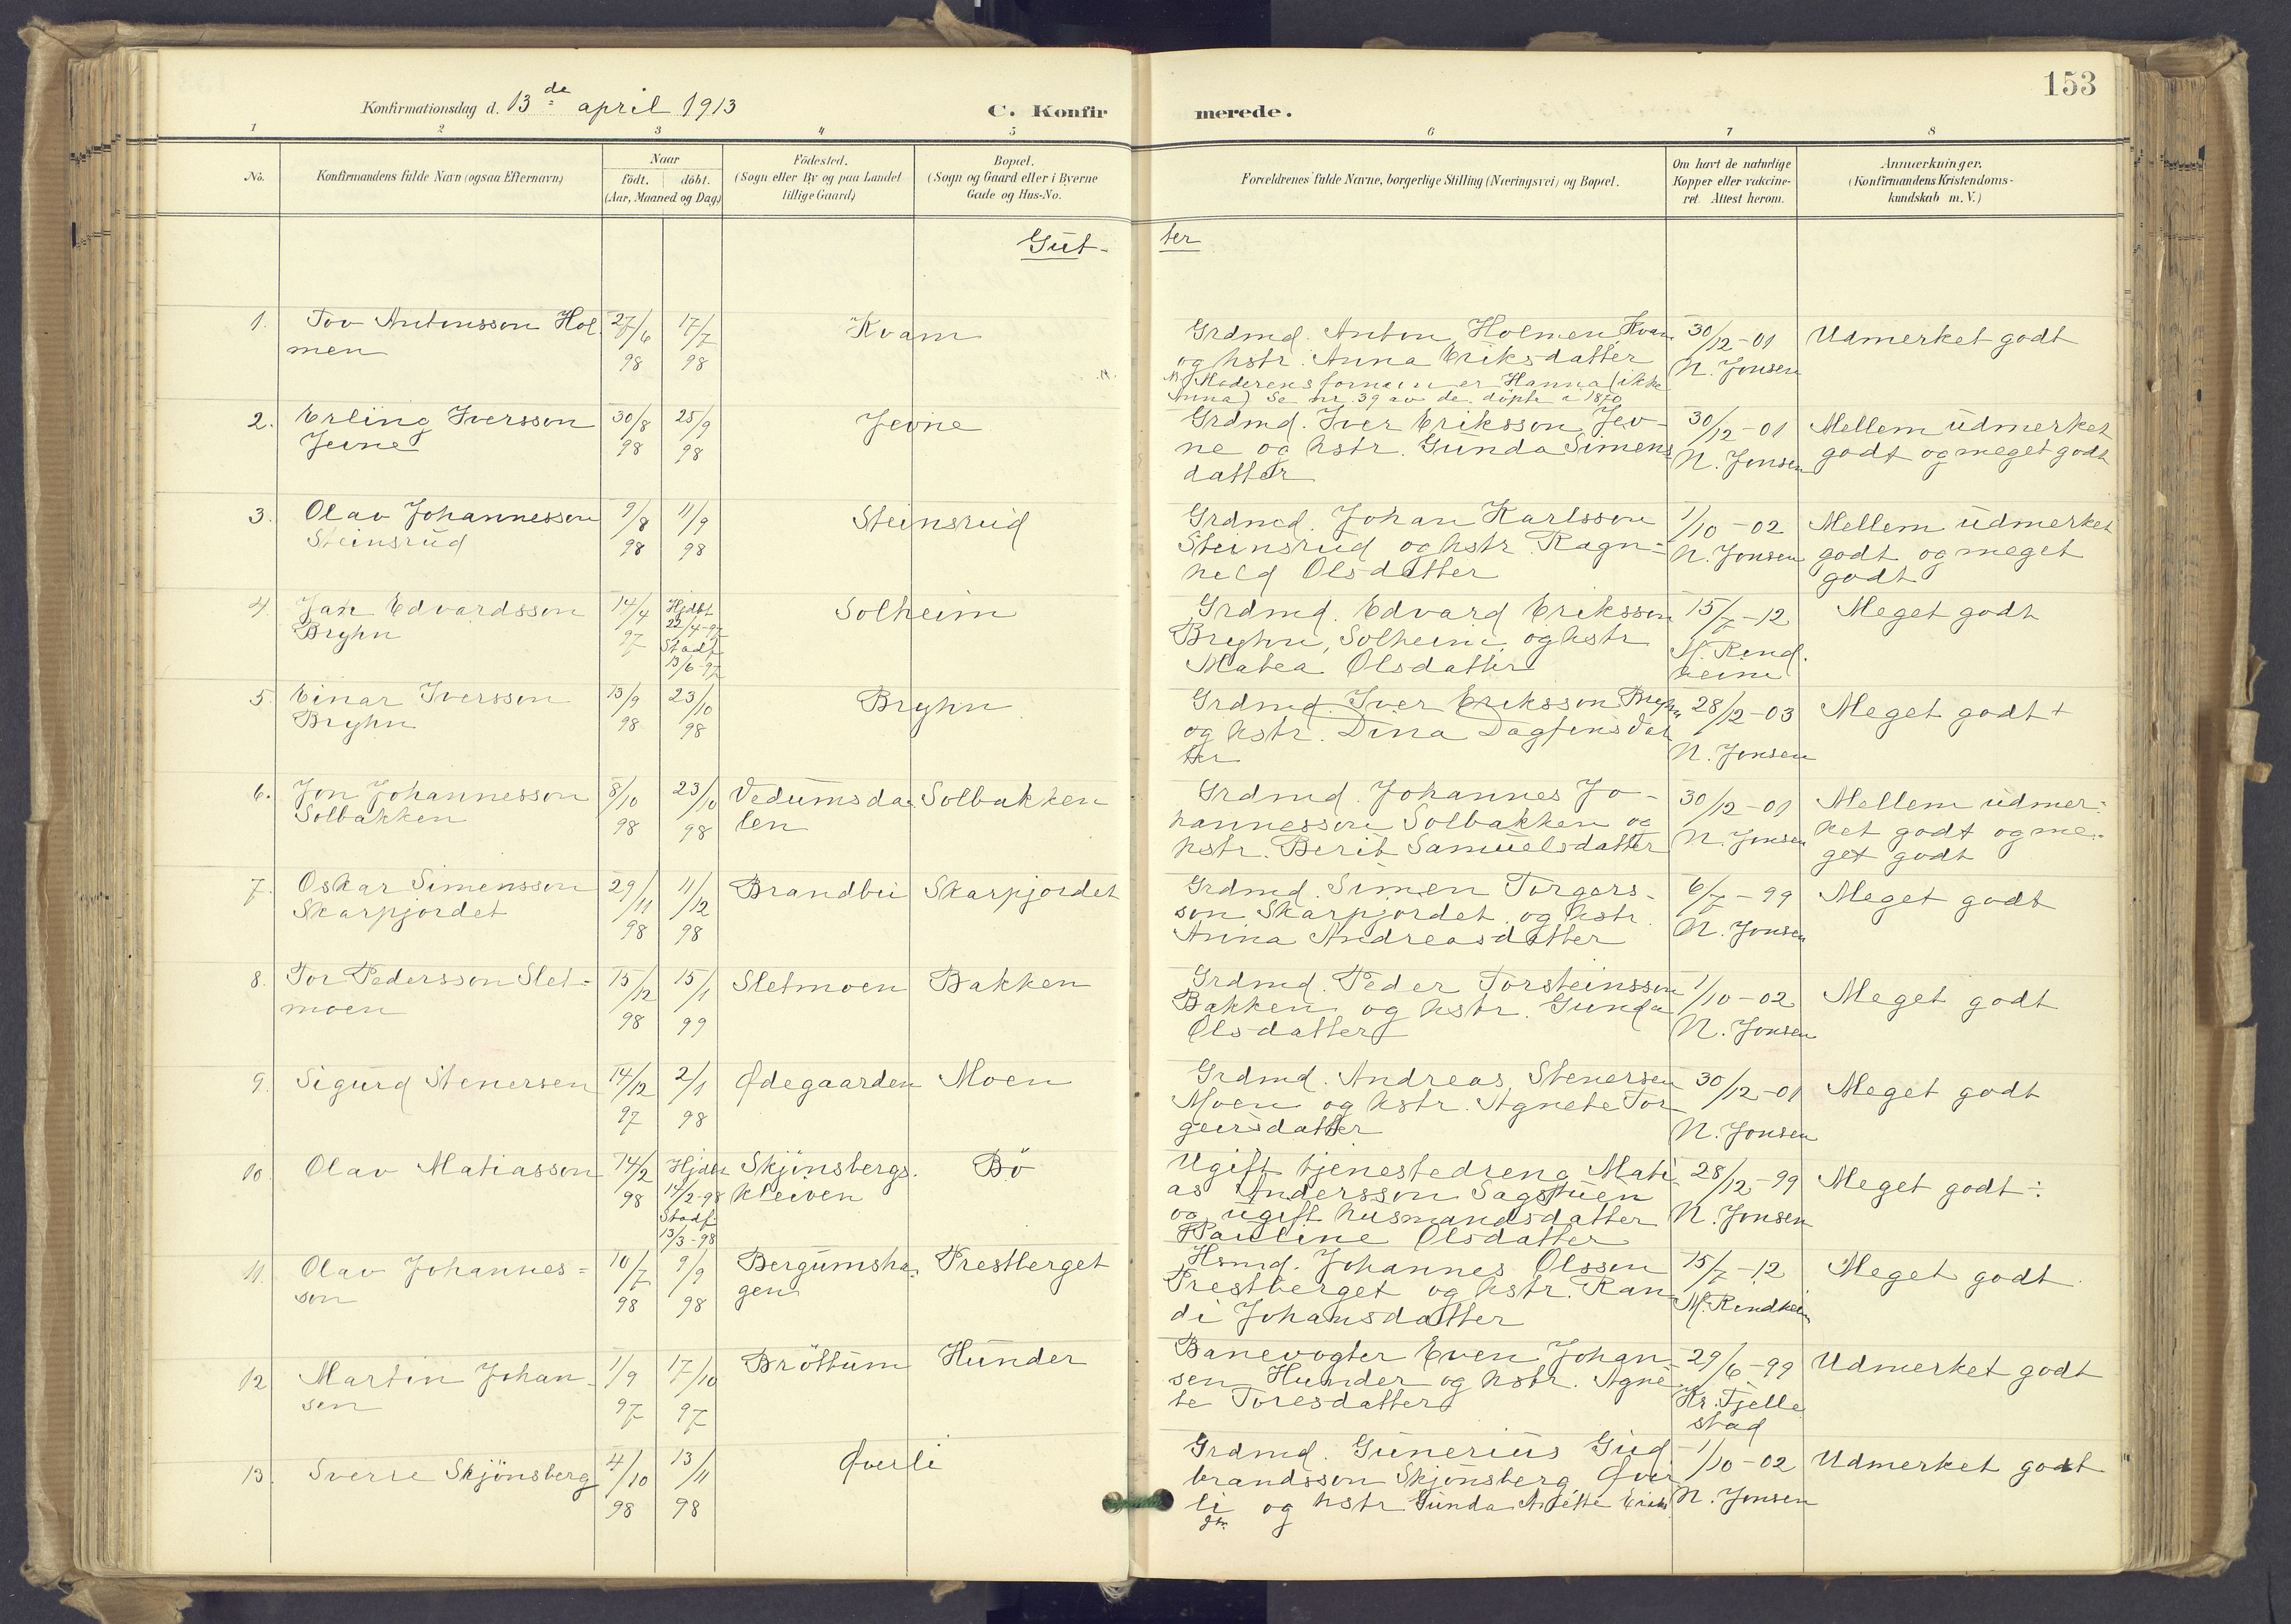 153
Konfirmationsdag d. 13de april 1913
C. Konfirmerede.
1 2 3 4 5 6 7 8
No.
Konfirmandens fulde Navn (ogsaa Efternavn)
Naar
født. døbt.
(Aar, Maaned og Dag)
Födested.
(Sogn eller By og paa Landet
tillige Gaard)
Bopæl.
(Sogn og Gaard eller i Byerne
Gade og Hus-No.
Forældrenes fulde Navne, borgerlige Stilling (Næringsvei) og Bopæl.
Om havt de naturlige
Kopper eller vakcine-
ret. Attest herom.
Anmærkninger.
(Konfirmandens Kristendoms-
kundskab m. V.)
Gut-
ter
1. Tov Antonsson Hol
men
27/6
98
17/7
98
Kvam
Grdmd. Anton Holmen, Kvam
og hstr. Anna Eriksdatter
Moderens fornavn er Hanna (ikke
Anna) Se nr. 39 av de døpte i 1870
30/12-01
N. Jonsen
Udmerket godt
2. Erling Iversson
Jevne
30/8
98
25/9
98
Jevne
Grdmd. Iver Eriksson Jev-
ne og hstr. Gunda Simens
datter
30/12-01
N. Jonsen
Mellem udmerket
godt og meget godt
3. Olav Johannesson
Steinsrud
9/8
98
11/9
98
Steinsrud
Grdmd. Johan Karlsson
Steinsrud og hstr. Ragn-
hild Olsdatter
1/10-02
N. Jonsen
Mellem udmerket
godt og meget
godt
4. Jan Edvardsson
Bryhn
14/4
97
Hjdbt
22/4-97
Stadf
13/6-97
Solheim
Grdmd. Edvard Eriksson
Bryhn, Solheim, og hstr
Matea Olsdatter
15/7-12
M. Rind.
heim
Meget godt
5. Einar Iversson
Bryhn
13/9
98
23/10
98
Bryhn
Grdmd. Iver Eriksson Bryhn
og hstr. Dina Dagfinsdat
ter
28/12-03
N. Jonsen
Meget godt +
6. Jon Johannesson
Solbakken
8/10
98
23/10
98
Vedumsda-
len
Solbakken
Grdmd. Johannes Jo-
hannesson Solbakken og
hstr. Berit Samuelsdatter
30/12-01
N. Jonsen
Mellem udmer-
ket godt og me-
get godt
7. Oskar Simensson
Skarpjordet
29/11
98
11/12
98
Brandbu
Skarpjordet
Grdmd. Simen Torgers-
son Skarpjordet og hstr.
Anna Andreasdatter
6/7-99
N. Jonsen
Meget godt
8. Tor Pedersson Slet-
moen
15/12
98
15/1
99
Sletmoen
Bakken
Grdmd. Peder Torsteinsson
Bakken og hstr. Gunda
Olsdatter
1/10-02
N. Jonsen
Meget godt
9. Sigurd Stenersen
14/12
97
2/1
98
Ødegaarden
Moen
Grdmd. Andreas Stenersen
Moen og hstr. Agnete Tor
geirsdatter
30/12-01
N. Jonsen
Meget godt
10 Olav Matiasson
14/2
98
Hjdbt
14/2-98
Stadf
13/3-98
Skjönsbergs.
kleiven
Bö
Ugift tjenestedreng Mati
as Andersson Sagstuen
og ugift husmandsdatter
Pauline Olsdatter
28/12-99
N. Jonsen
Meget godt ÷
11. Olav Johannes-
son
10/7
98
9/9
98
Bergumsha-
gen
Prestberget
Hsmd. Johannes Olsson
Prestberget og hstr. Ran
di Johansdatter
15/7-12
M. Rindheim
Meget godt
12 Martin Johan-
sen
1/9
97
17/10
97
Bröttum
Hunder
Banevogter Even Johan
sen Hunder og hstr. Agne
te Toresdatter
29/6-99
Kr. Fjelle
stad
Udmerket godt
13. Sverre Skjönsberg
4/10
98
13/11
98
Øverli
Grdmd. Gunerius Gud
brandsson Skjönsberg Øver
li og hstr Gunda Anette Eriks
dtr.
1/10-02
N. Jonsen
Udmerket godt